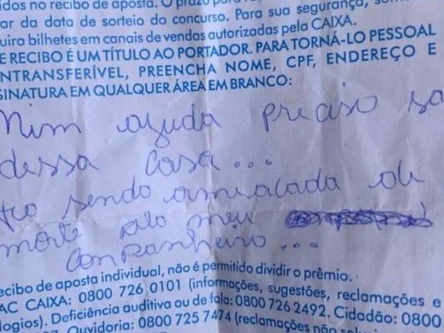 didos no recibo de aposta. O prazo para
tar da data de sorteio do concurso. Para sua segurança, som
uira bilhetes em canais de vendas autorizadas pela CAIXA.
E RECIBO É UM TÍTULO AO PORTADOR. PARA TORNÁ-LO PESSOAL
NTRANSFERÍVEL, PREENCHA NOME, CPF, ENDEREÇO E
SINATURA EM QUALQUER ÁREA EM BRANCO:
Mim ajuda preciso sa
dessa casa...
to sendo ameaçada de
morte pelo meu
companheiro...
ecibo de aposta individual, não é permitido dividir o prêmio.
AC CAIXA: 0800 726 0101 (informações, sugestões, reclamações e
logios). Deficiência auditiva ou de fala: 0800 726 2492. Cidadão: 0800
Ouvidoria: 0800 725 7474 (reclamações não